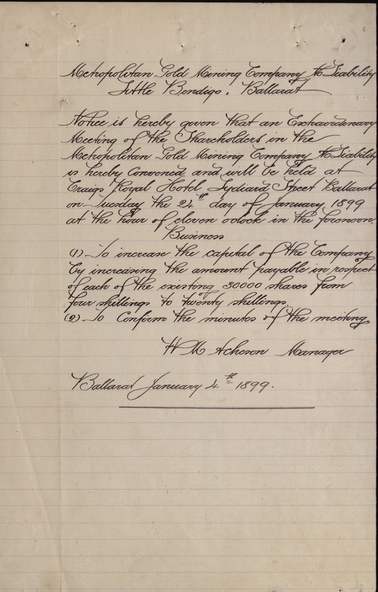 Metropolitan Gold Mining Company No Liability
Little Bendigo, Ballarat
Notice is hereby given that an Extraordinary
Meeting of the Shareholders in the
Metropolitan Gold Mining Company No Liability
is hereby convened and will be held at
Craigs Royal Hotel, Lydiard Street Ballarat
on Tuesday the 24th day of January 1899
at the hour of eleven oclock in the forenoon.
Business
(1) To increase the capital of the Company
by increasing the amount payable in respect
of each of the existing 30000 shares from
four shillings to twenty shillings
(2) To Confirm the minutes of the meeting
H M Acheson Manager
Ballarat January 4th 1899.